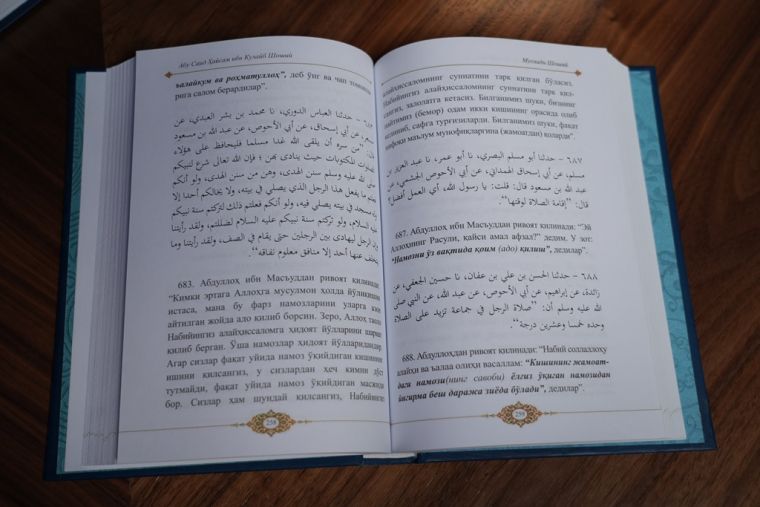 Абу Саид Ҳайсам ибн Кулайб Шоший
ъалайкум ва роҳматуллоҳ”, деб ўнг ва чап томонла-
рига салом берардилар”.
حدثنا العباس الدوري، نا محمد بن بشر العبدي، عن
عن أبي إسحاق، عن أبي الأحوص، عن عبد الله بن مسعود
قال: ”من سره أن يلقى الله غدا مسلما فليحافظ على هؤلاء
الصلوات المكتوبات حيث ينادى بهن ؛ فإن الله تعالى شرع لنبيكم
صلى الله عليه وسلم سنن الهدى، وهن من سنن الهدى، ولو أنكم
ما يفعل هذا الرجل الذي يصلي في بيته، ولا يخالكم أحدا إلا
مسجد في بيته يصلي فيه، ولو أنكم فعلتم ذلك لتركتم سنة نبيكم
السلام، ولو تركتم سنة نبيكم عليه السلام لضللتم، ولقد رأيتنا
إن الرجل ليهادى بين الرجلين حتى يقام في الصف، ولقد رأيتنا وما
يتخلف عنها أحد إلا منافق معلوم نفاقه“.
683. Абдуллоҳ ибн Масъуддан ривоят қилинади:
“Кимки эртага Аллоҳга мусулмон ҳолда йўлиқишни
истаса, мана бу фарз намозларини уларга азон
айтилган жойда адо қилиб борсин. Зеро, Аллоҳ таоло
Набийингиз алайҳиссаломга ҳидоят йўлларини шариат
қилиб берган. Ўша намозлар ҳидоят йўлларидандир.
Агар сизлар фақат уйида намоз ўқийдиган кишининг
ишини қилсангиз, у сизлардан ҳеч кимни дўст
тутмайди, фақат уйида намоз ўқийдиган масжиди
бор. Сизлар ҳам шундай қилсангиз, Набийингиз
258
Муснади Шоший
алайҳиссаломнинг суннатини тарк қилган бўласиз.
Набийингиз алайҳиссаломнинг суннатини тарк қил-
сангиз, залолатга кетасиз. Билганимиз шуки, бизнинг
пайтимиз (бемор) одам икки кишининг орасида олиб
келиниб, сафга турғизиларди. Билганимиз шуки, фақат
нифоқи маълум мунофиқларгина (жамоатдан) қоларди”.
٦٨٧ – حدثنا أبو مسلم البصري، نا أبو عمر، نا عبد العزيز بن
مسلم، عن أبي إسحاق الهمداني، عن أبي الأحوص الجشمي، عن
عبد الله بن مسعود قال: قلت: يا رسول الله، أي العمل أفضل؟
قال: ”إقامة الصلاة لوقتها“.
687. Абдуллоҳ ибн Масъуддан ривоят қилинади: “Эй
Аллоҳнинг Расули, қайси амал афзал?” дедим. У зот:
“Намозни ўз вақтида қоим (адо) қилиш”, дедилар”.
٦٨٨ – حدثنا الحسن بن علي بن عفان، نا حسين الجعفي، عن
زائدة، عن إبراهيم، عن أبي الأحوص، عن عبد الله، عن النبي صلى
الله عليه وسلم أن: ”صلاة الرجل في جماعة تزيد على الصلاة
وحده خمسا وعشرين درجة“.
688. Абдуллоҳдан ривоят қилинади: “Набий соллаллоҳу
алайҳи ва ъалаа олиҳи васаллам: “Кишининг жамоат-
даги намози(нинг савоби) ёлғиз ўқиган намозидан
йигирма беш даража зиёда бўлади”, дедилар”.
259